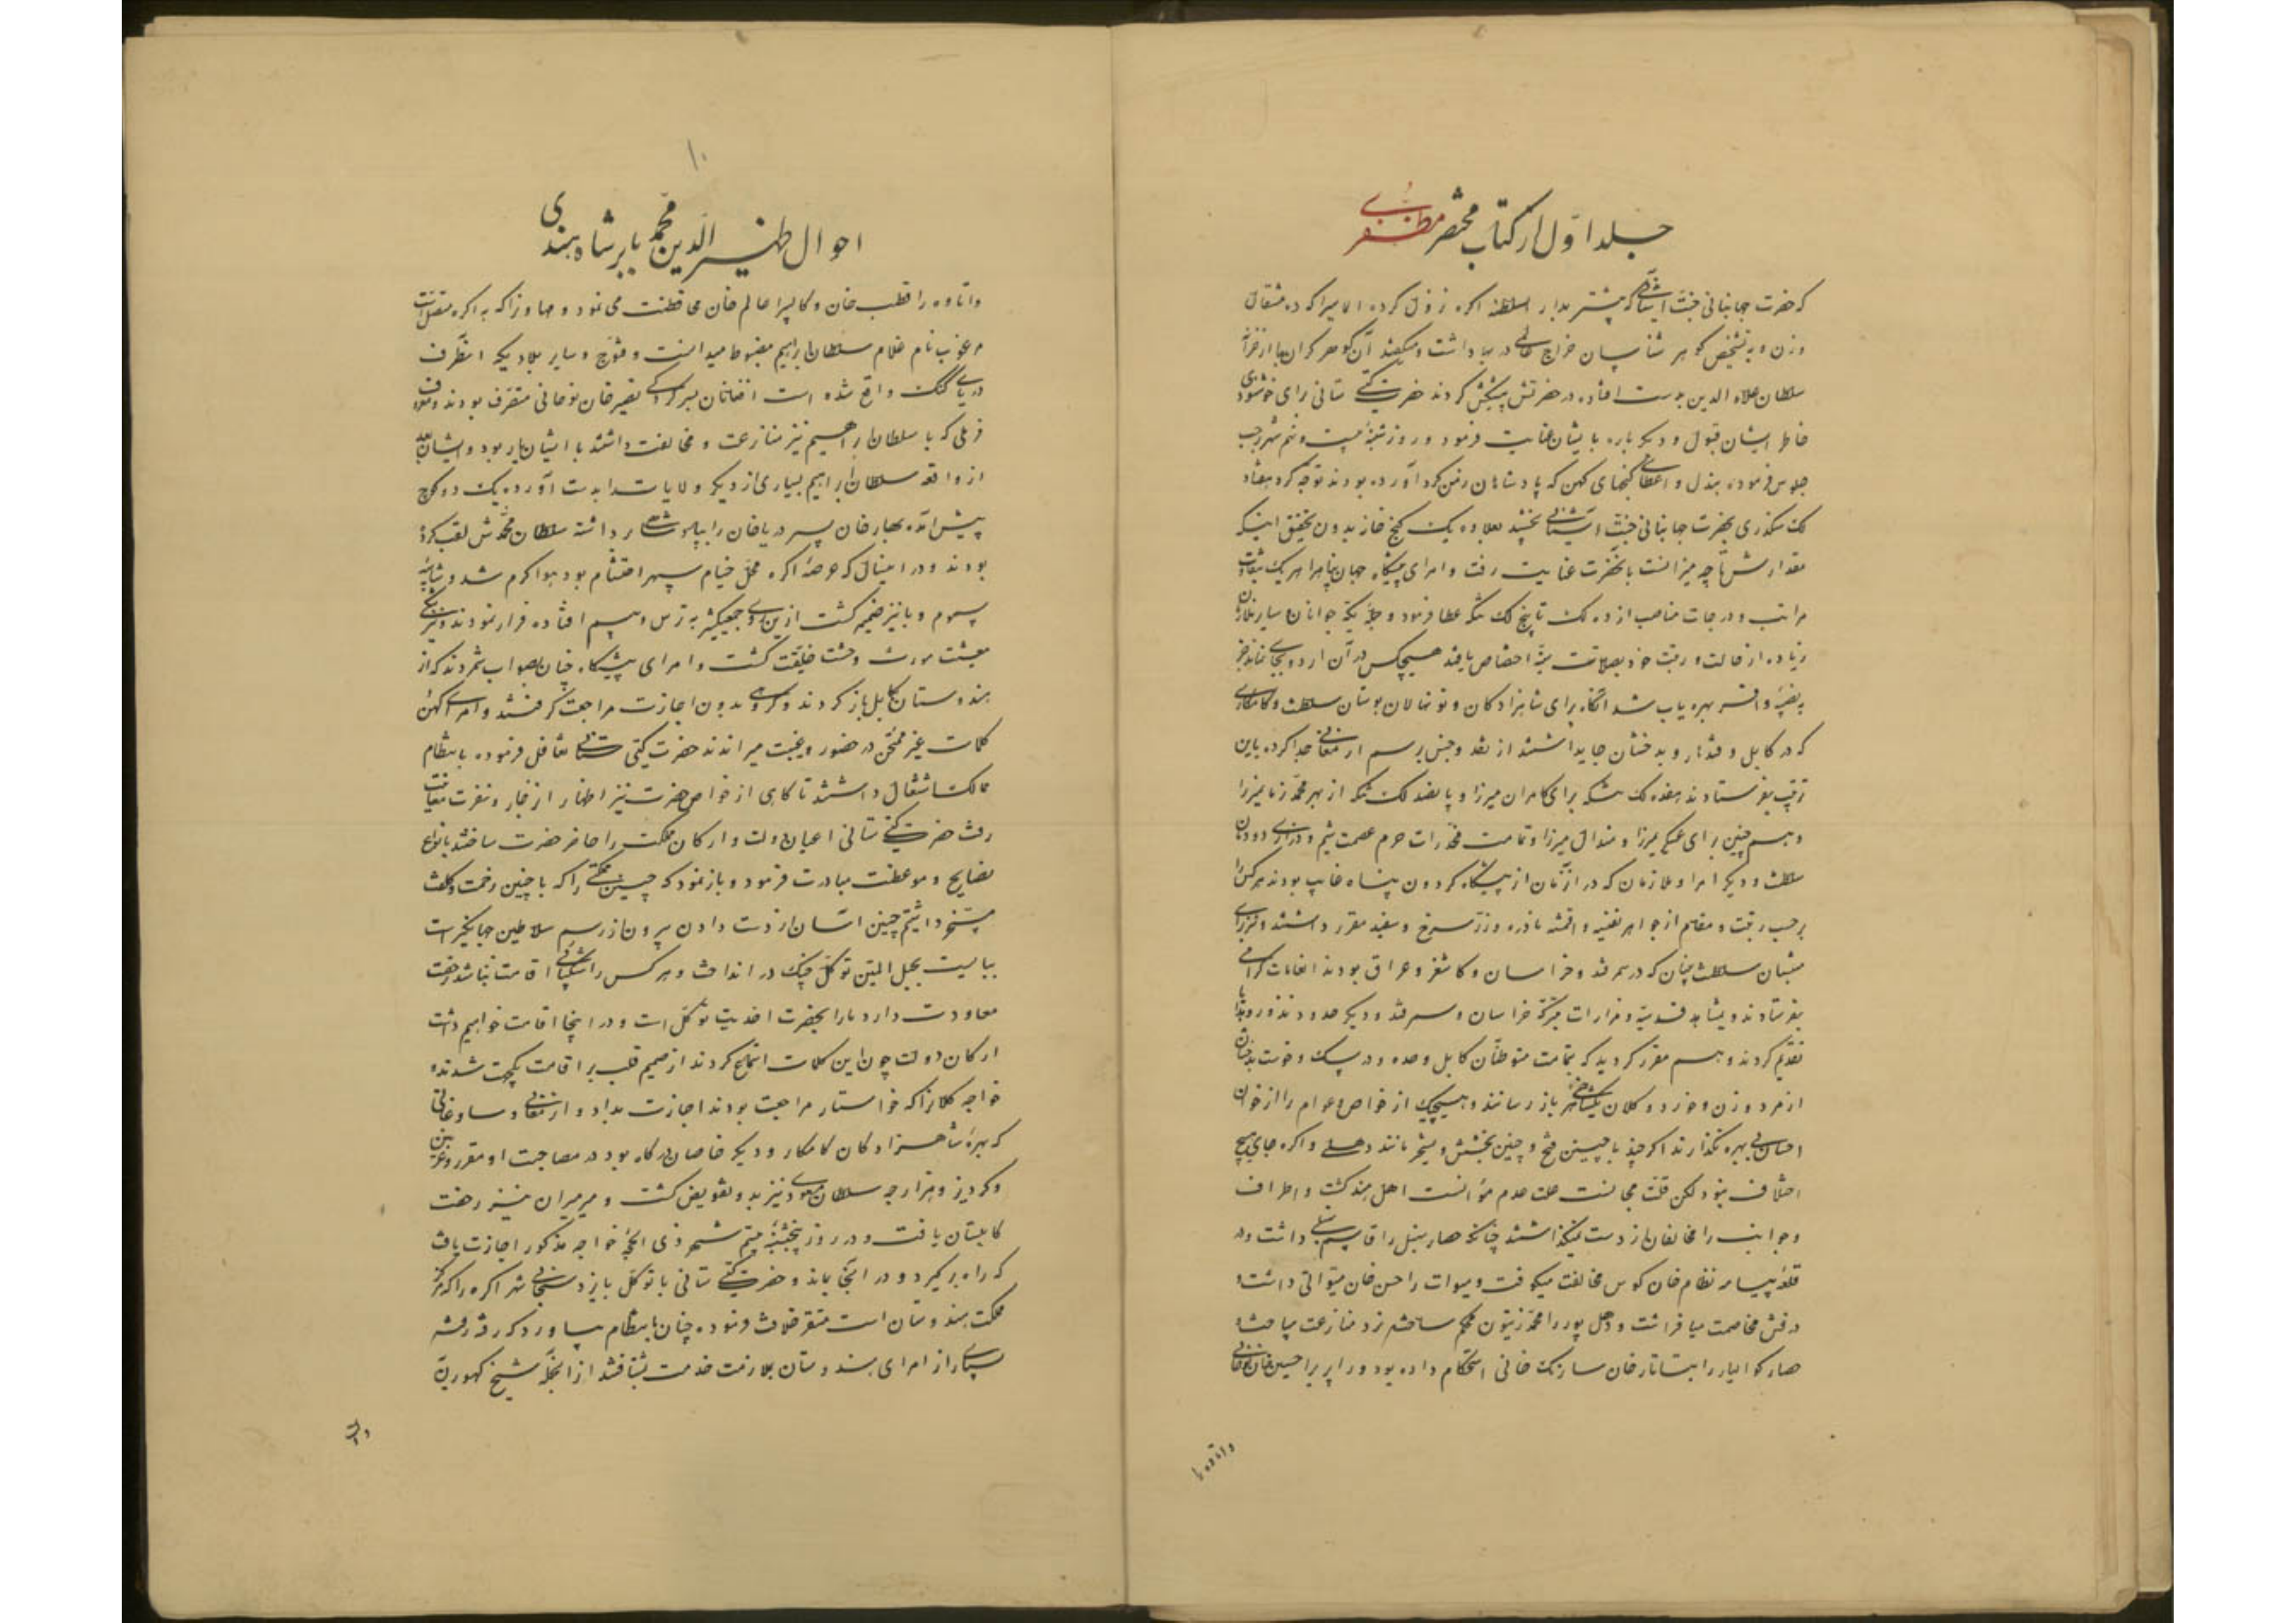 جلد اول از کتاب مختصر مظفری
که حضرت جهانبانی جنت آشیانی که پیشتر بدار السلطنه اکره نزول کرده الماسیرا که ده مثقال
وزن و به تشخیص گوهر شناسان خراج در بها داشت و میگفتند آن گوهر گران بها از خزانه
سلطان علاء الدین بدست افتاده در حضرتش پیشکش کردند حضرت گیتی ستانی برای خوشنودی
خاطر ایشان قبول و دیکر باره بایشان عنایت فرمود و روز شنبه بیست و نهم شهر رجب
جلوس فرموده ببذل و اعطای گنجهای کهن که پادشاهان زمن کرد آورده بودند توجه کرد هفتاد
لک سکندری بحضرت جهانبانی جنت آشیانی بخشید بعلاوه یک گنج خانه بدون تحقیق اینکه
مقدارش تا چه میزانست بآنحضرت عنایت رفت و امرای پیشگاه جهان پناهرا هر یک بتفاوت
مراتب و درجات مناصب از ده لک تا پنج لک تنکه عطا فرمود و جمله یکه جوانان و سایر ملازمان
زیاده از حالت و رتبت خود بصلات اختصاص یافتند هیچکس در آن اردو بجای نماند جز
بنصیبه وافر بهره یاب شد آنگاه برای شاهزادکان و نونهالان بوستان سلطنت و کامکاری
که در کابل و قندهار و بدخشان جای داشتند از نقد و جنس برسم ارمغانی جدا کرده باین
ترتیب بفرستادند هفده لک تنکه برای کامران میرزا و پانصد لک تنکه از بهر محمد زمان میرزا
و هم چنین برای عسکری میرزا و هندال میرزا و تمامت مخدرات حرم عصمت شیم و دودمان
سلطنت و دیکر امرا و ملازمان که در آنزمان از پیشگاه گردون پناه غایب بودند هر کس را
برحسب رتبت و مقام از جواهر نفیسه و اقمشه نادره و زر سرخ و سفید مقرر داشتند و نیز برای
منتسبان سلطنت بنیان که در سمرقند و خراسان و کاشغر و عراق بودند انعامات گرامی
بفرستادند و بمشاهد قدسیه و مزارات متبرکه خراسان و سمرقند و دیکر حدود نذور و هدایا
تقدیم کردند و هم مقرر کردید که بتمامت متوطنان کابل و صده و درسک و خوست بدخشان
از مرد و زن و خورد و کلان یک شاهرخی باز رسانند و هیچیک از خواص و عوام را از خوان
احسان بی بهره نگذارند اکر چند با چنین فتح و چنین بخشش و تسخیر مانند دهلی و اکره جای هیچ
اختلاف نبود لکن قلت مجانست علت عدم مؤانست اهل هند کشت و اطراف
و جوانب را مخالفان از دست نمیگذاشتند چنانکه حصار سنبل را قاسم سنبلی داشت و در
قلعه بیانه نظام خان کوس مخالفت میکوفت و میوات را حسن خان میواتی داشت و
درفش مخاصمت میافراشت و دهل پور را محمد زیتون محکم ساخته نرد منازعت میباخت و
حصار کوالیار را تاتارخان سارنک خانی استحکام داده بود و راپر برا حسین خان نوحانی
واتاوه را
۱۰
احوال ظهیر الدین محمد بابر شاه هندی
واتاوه را قطب خان و کالپیرا عالم خان محافظت می نمود و مهاوزا که به اکره متصل است
مرغوب نام غلام سلطان ابراهیم مضبوط میدانست و قنوج و سایر بلادیکه آنطرف
دریای گنگ واقع شده است افغانان بسرکردگی نصیر خان نوحانی متصرف بودند و معروف
فرملی که با سلطان ابراهیم نیز منازعت و مخالفت داشتند با ایشان یار بود و ایشان بعد
از واقعه سلطان ابراهیم بسیاری از دیکر ولایات را بدست آورده یک دو کوچ
پیش آمده بهار خان پسر دریا خان را بپادشاهی برداشته سلطان محمدش لقب کرده
بودند و در اینسال که عرصه اکره محل خیام سپهر احتشام بود هوا گرم شد و شائبه
سموم و با نیز ضمیمه گشت ازین روی جمعی کثیر به ترس و بیم افتاده فرار نمودند و
معیشت مورث وحشت خلقت گشت و امرای پیشگاه چنان بصواب شمردند که از
هندوستان بکابل باز کردند و کروهی بدون اجازت مراجعت گرفتند و امرای کهن
کلمات غیر مستحسن در حضور و غیبت میراندند حضرت گیتی ستانی تغافل فرموده بانتظام
ممالک اشتغال داشتند تا کاهی از خواص حضرت نیز اظهار انزجار و نفرت معاینت
رفت حضرت گیتی ستانی اعیان دولت و ارکان مملکت را حاضر حضرت ساختند بانواع
نصایح و موعظت مبادرت فرمود و باز نمود که چنین مملکتی را که با چنین زحمت و کلفت
مسخر داشتیم چنین آسان از دست دادن بیرون از رسم سلاطین جهانگیر است
ببایست بحبل المتین توکل چنگ در انداخت و هر کس را شکیبائی اقامت نباشد رخصت
معاودت دارد ما را بحضرت احدیت توکل است و در اینجا اقامت خواهیم داشت
ارکان دولت چون این کلمات استماع کردند از صمیم قلب بر اقامت یکجهت شدند و
خواجه کلانرا که خواستار مراجعت بودند اجازت بداد و ارمغانی و سوغاتی
که بهره شاهزادکان کامکار و دیکر خاصان درگاه بود در مصاحبت او مقرر و غزنین
و کردیز و هزارجه سلطان مسعود نیز بدو تفویض گشت و میر میران نیز رخصت
کابلستان یافت و در روز پنجشنبه بیستم شهر ذی الحجه خواجه مذکور اجازت یافت
که راه بر گیرد و در آنجا بماند و حضرت گیتی ستانی با توکل بایزد سبحانی شهر اکره را که مرکز
مملکت هندوستان است مستقر خلافت فرموده چنان بانتظام بیاورد که رفته رفته
بسیار از امرای هندوستان بملازمت خدمت بشتافتند از آنجمله شیخ کهورن